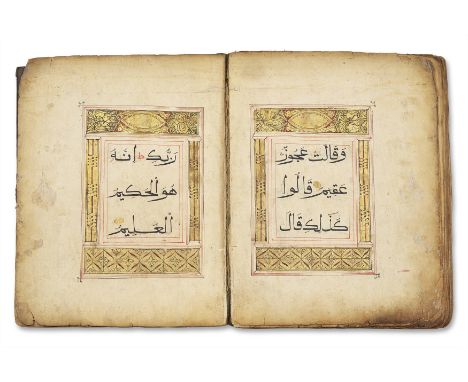 وَقَالَتْ عَجُوزٌ
عَقِيمٌ قَالُوا
كَذَلِكِ قَالَ
رَبُّكِ إِنَّهُ
هُوَ الْحَكِيمُ
الْعَلِيمُ